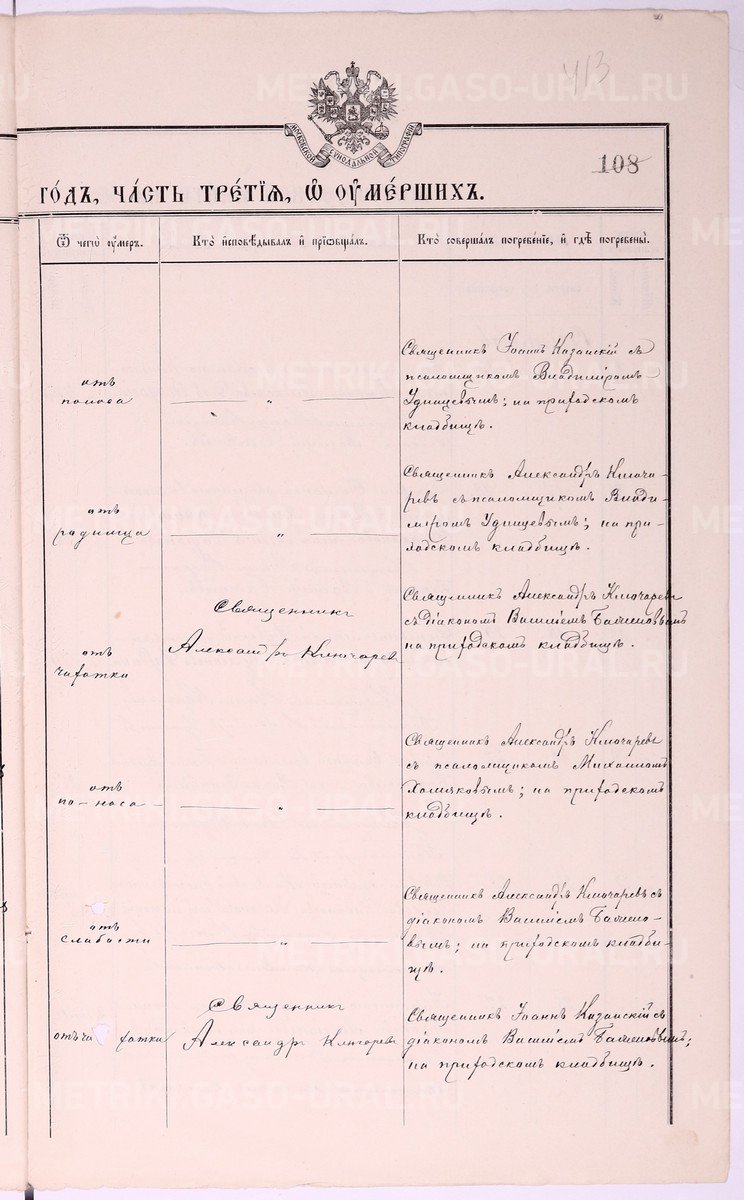 413
МОСКОВСКОЙ СѴНОДАЛЬНОЙ ТИПОГРАФІИ
108
ГО́ДЪ, ЧА́СТЬ ТРЕ́ТІѦ, Ѽ ОУ҆МЕ́РШИХЪ.
Ѿ чегѡ̀ оу҆́меръ.
Кто̀ и҆сповѣ́дывалъ и҆ прїѡбща́лъ.
Кто̀ соверша́лъ погребе́нїе, и҆ гдѣ̀ погребены̀.
отъ
поноса
— „ —
Священникъ Іоаннъ Казанскій съ
псаломщикомъ Владиміромъ
Удинцевымъ; на приходскомъ
кладбищѣ.
отъ
родимца
— „ —
Священникъ Александръ Ключа-
ревъ съ псаломщикомъ Влади-
міромъ Удинцевымъ; на при-
ходскомъ кладбищѣ.
отъ
чахотки
Священникъ
Александръ Ключаревъ
Священникъ Александръ Ключаревъ
съ діакономъ Василіемъ
на приходскомъ кладбищѣ.
отъ
по-носа
— „ —
Священникъ Александръ Ключаревъ
съ псаломщикомъ Михаиломъ
Хомяковымъ; на приходскомъ
кладбищѣ.
отъ
слабости
— „ —
Священникъ Александръ Ключаревъ съ
діакономъ Василіемъ
на приходскомъ кладби-
щѣ.
отъ ча хотки
Священникъ
Александръ Ключаревъ
Священникъ Іоаннъ Казанскій съ
діакономъ Василіемъ
на приходскомъ кладбищѣ.
METRIKI.GASO-URAL.RU